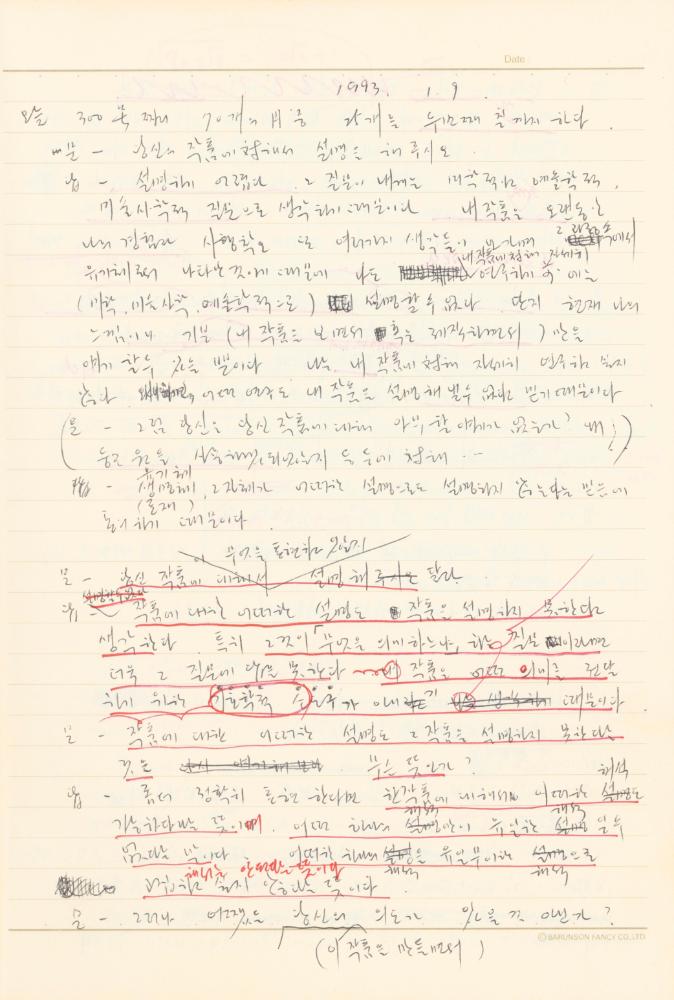 Date
1993. 1. 9.
오늘 300 묶 짜리 70개의 시 중 를 두번째 칠까지 하다
문 - 당신의 작품에 대해서 설명을 해 주시오
답 - 설명하기 어렵다 그 질문이 내게는 미학적이고 예술학적,
미술사학적 질문으로 생각하기 때문이다 내 작품은 오랜동안
나의 경험과 또 여러가지 생각들이 속에서
유기체로서 나타난 것이기 때문에 나도 내 작품에 대해 자세히 연구하기 에는
(미학, 미술사학, 예술학적으로) 설명할 수 없다 단지 현재 나의
느낌이나 기분 (내 작품을 보면서 혹은 제작하면서) 만을
얘기 할 수 있을 뿐이다 나는 내 작품에 대해 자세히 연구하고 싶지
않다 어떤 연구도 내 작품을 설명해 낼 수 없다고 믿기 때문이다
(문 - 그럼 당신은 당신 작품에 대해 아무 할 얘기가 없는가?
등등에 대해 ...)
답 - 생명체, 유기체 (존재) 그 자체가 어떠한 설명으로도 설명하지 않는다는 믿음에
하기 때문이다.
문 - 당신 작품이 무엇을 표현하고 있는지 설명해 달라.
답 - 작품에 대한 어떠한 설명도 작품을 설명하지 못한다고
생각한다. 특히 그것이 "무엇을 의미하느냐, 하는 질문이라면
더욱 그 질문에 답을 못한다 작품은 어떤 의미를 전달
하기 위한 기호학적 가 아니기 때문이다.
문 - 작품에 대한 어떠한 설명도 그 작품을 설명하지 못한다는
것은 무슨 뜻인가?
답 - 좀더 정확히 표현한다면 한 작품에 대해서는 어떠한 해석도
가능하다는 뜻이며. 어떤 하나의 해석만이 유일한 해석일 수
없다는 말이다 어떠한 하나의 해석을 유일무이한 해석으로
해서는 안된다는 뜻이다
싶지 않다는 뜻이다.
문 - 그러나 어쨌든 당신의 의도가 있을 것 아닌가?
(이 작품을 만들면서)
© BARUNSON FANCY CO.,LTD.